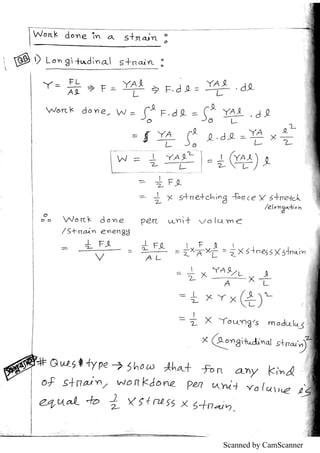 Work done in a strain :
1) Longitudinal strain :
Y = FL/Al ⇒ F = YAl/L ⇒ F.dl = YAl/L . dl
Work done, W = ∫₀ˡ F.dl = ∫₀ˡ YAl/L . dl
= YA/L ∫₀ˡ l.dl = YA/L × l²/2
W = 1/2 YAl²/L = 1/2 (YAl/L) l
= 1/2 Fl
= 1/2 × stretching force × stretch
/elongation
∴ Work done per unit volume
/Strain energy
= 1/2 Fl / V = 1/2 Fl / AL = 1/2 × F/A × l/L = 1/2 × stress × strain
= 1/2 × YAl/L / A × l/L
= 1/2 × Y × (l/L)²
= 1/2 × Young's modulus
× (longitudinal strain)²
# Ques type → Show that for any kind
of strain, workdone per unit volume is
equal to 1/2 × stress × strain.
Scanned by CamScanner